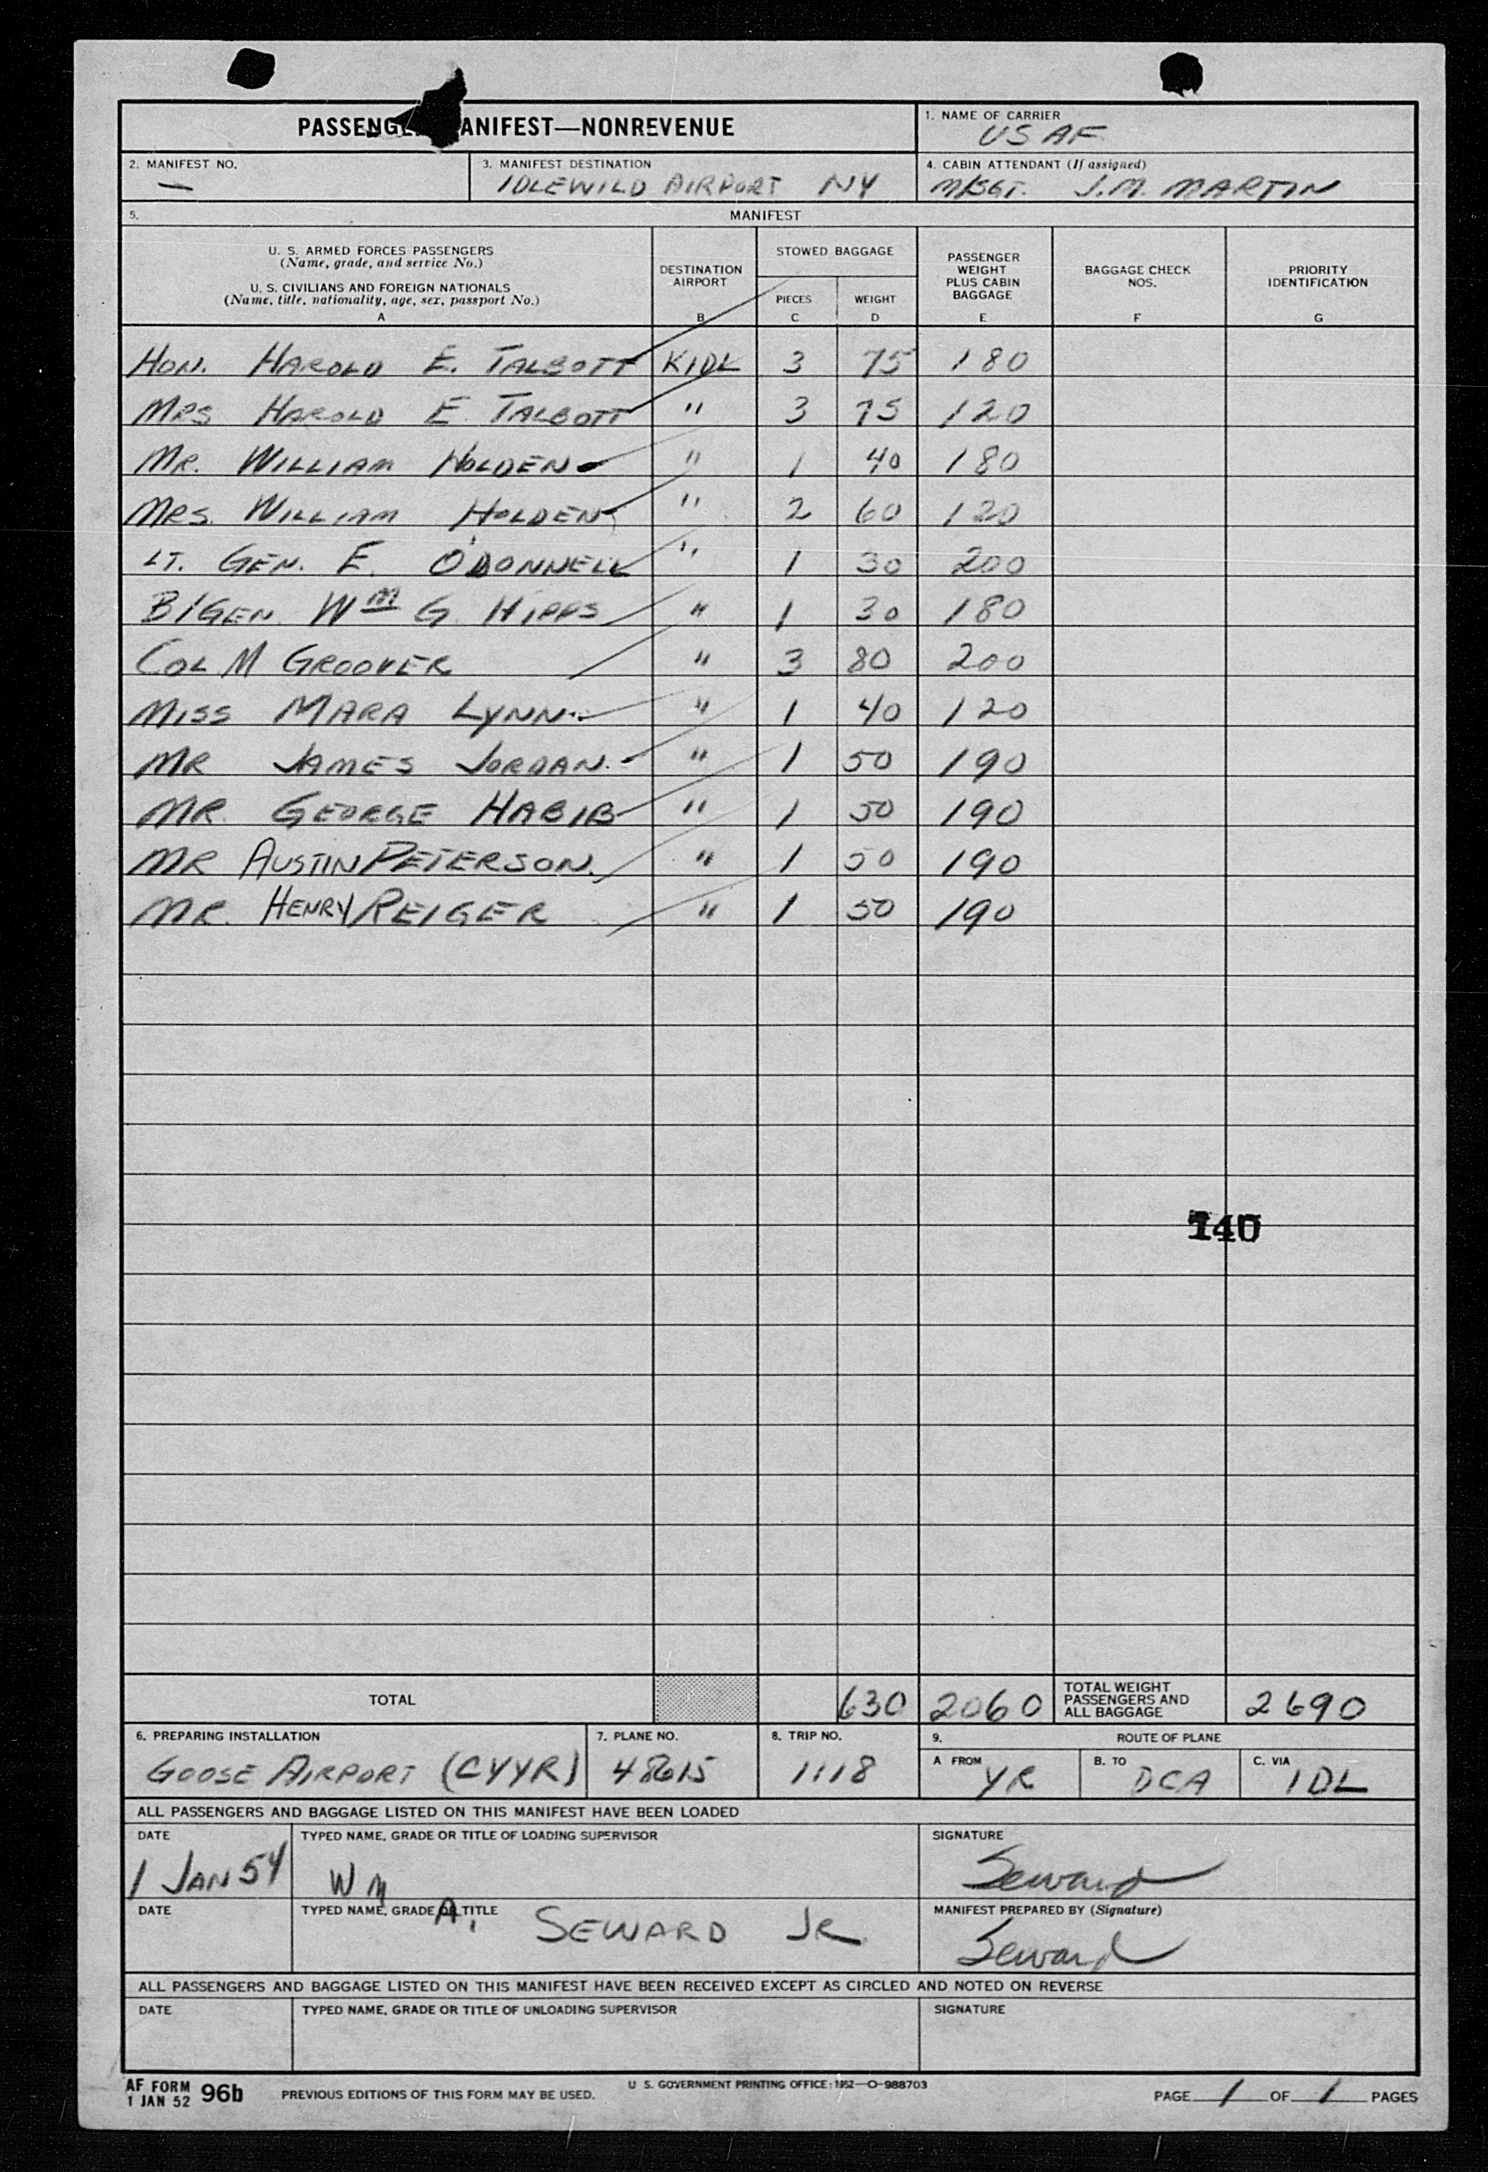 PASSENG ANIFEST—NONREVENUE
1. NAME OF CARRIER
USAF
2. MANIFEST NO.
—
3. MANIFEST DESTINATION
IDLEWILD AIRPORT NY
4. CABIN ATTENDANT (If assigned)
M/SGT. J.M. MARTIN
5. MANIFEST
U. S. ARMED FORCES PASSENGERS
(Name, grade, and service No.)
U. S. CIVILIANS AND FOREIGN NATIONALS
(Name, title, nationality, age, sex, passport No.)
A
DESTINATION
AIRPORT
B
STOWED BAGGAGE
PIECES
C
WEIGHT
D
PASSENGER
WEIGHT
PLUS CABIN
BAGGAGE
E
BAGGAGE CHECK
NOS.
F
PRIORITY
IDENTIFICATION
G
HON. HAROLD E. TALBOTT KIDL 3 75 180
MRS HAROLD E TALBOTT " 3 75 120
MR. WILLIAM HOLDEN " 1 40 180
MRS. WILLIAM HOLDEN " 2 60 120
LT. GEN. E. O'DONNELL " 1 30 200
B/GEN. Wm G. HIPPS " 1 30 180
COL M GROOVER " 3 80 200
MISS MARA LYNN " 1 40 120
MR JAMES JORDAN. " 1 50 190
MR. GEORGE HABIB " 1 50 190
MR AUSTIN PETERSON. " 1 50 190
MR. HENRY REIGER " 1 50 190
140
TOTAL 630 2060
TOTAL WEIGHT
PASSENGERS AND
ALL BAGGAGE
2690
6. PREPARING INSTALLATION
GOOSE AIRPORT (CYYR)
7. PLANE NO.
48615
8. TRIP NO.
1118
9. ROUTE OF PLANE
A FROM
YR
B. TO
DCA
C. VIA
IDL
ALL PASSENGERS AND BAGGAGE LISTED ON THIS MANIFEST HAVE BEEN LOADED
DATE
1 JAN 54
TYPED NAME, GRADE OR TITLE OF LOADING SUPERVISOR
WM
SIGNATURE
Seward
DATE
TYPED NAME, GRADE OR TITLE
A. SEWARD JR.
MANIFEST PREPARED BY (Signature)
Seward
ALL PASSENGERS AND BAGGAGE LISTED ON THIS MANIFEST HAVE BEEN RECEIVED EXCEPT AS CIRCLED AND NOTED ON REVERSE
DATE
TYPED NAME, GRADE OR TITLE OF UNLOADING SUPERVISOR
SIGNATURE
AF FORM
1 JAN 52 96b
PREVIOUS EDITIONS OF THIS FORM MAY BE USED.
U S. GOVERNMENT PRINTING OFFICE: 1952—O-988703
PAGE 1 OF 1 PAGES